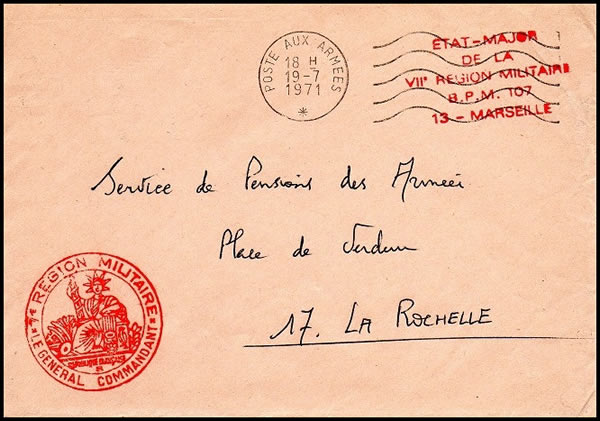 POSTE AUX ARMEES
18 H
19-7
1971
*
ETAT-MAJOR
DE LA
VIIe REGION MILITAIRE
B.P.M. 107
13 - MARSEILLE
Service de Pensions des Armées
Place de Verdun
17. LA ROCHELLE
* 7e REGION MILITAIRE *
LE GENERAL COMMANDANT